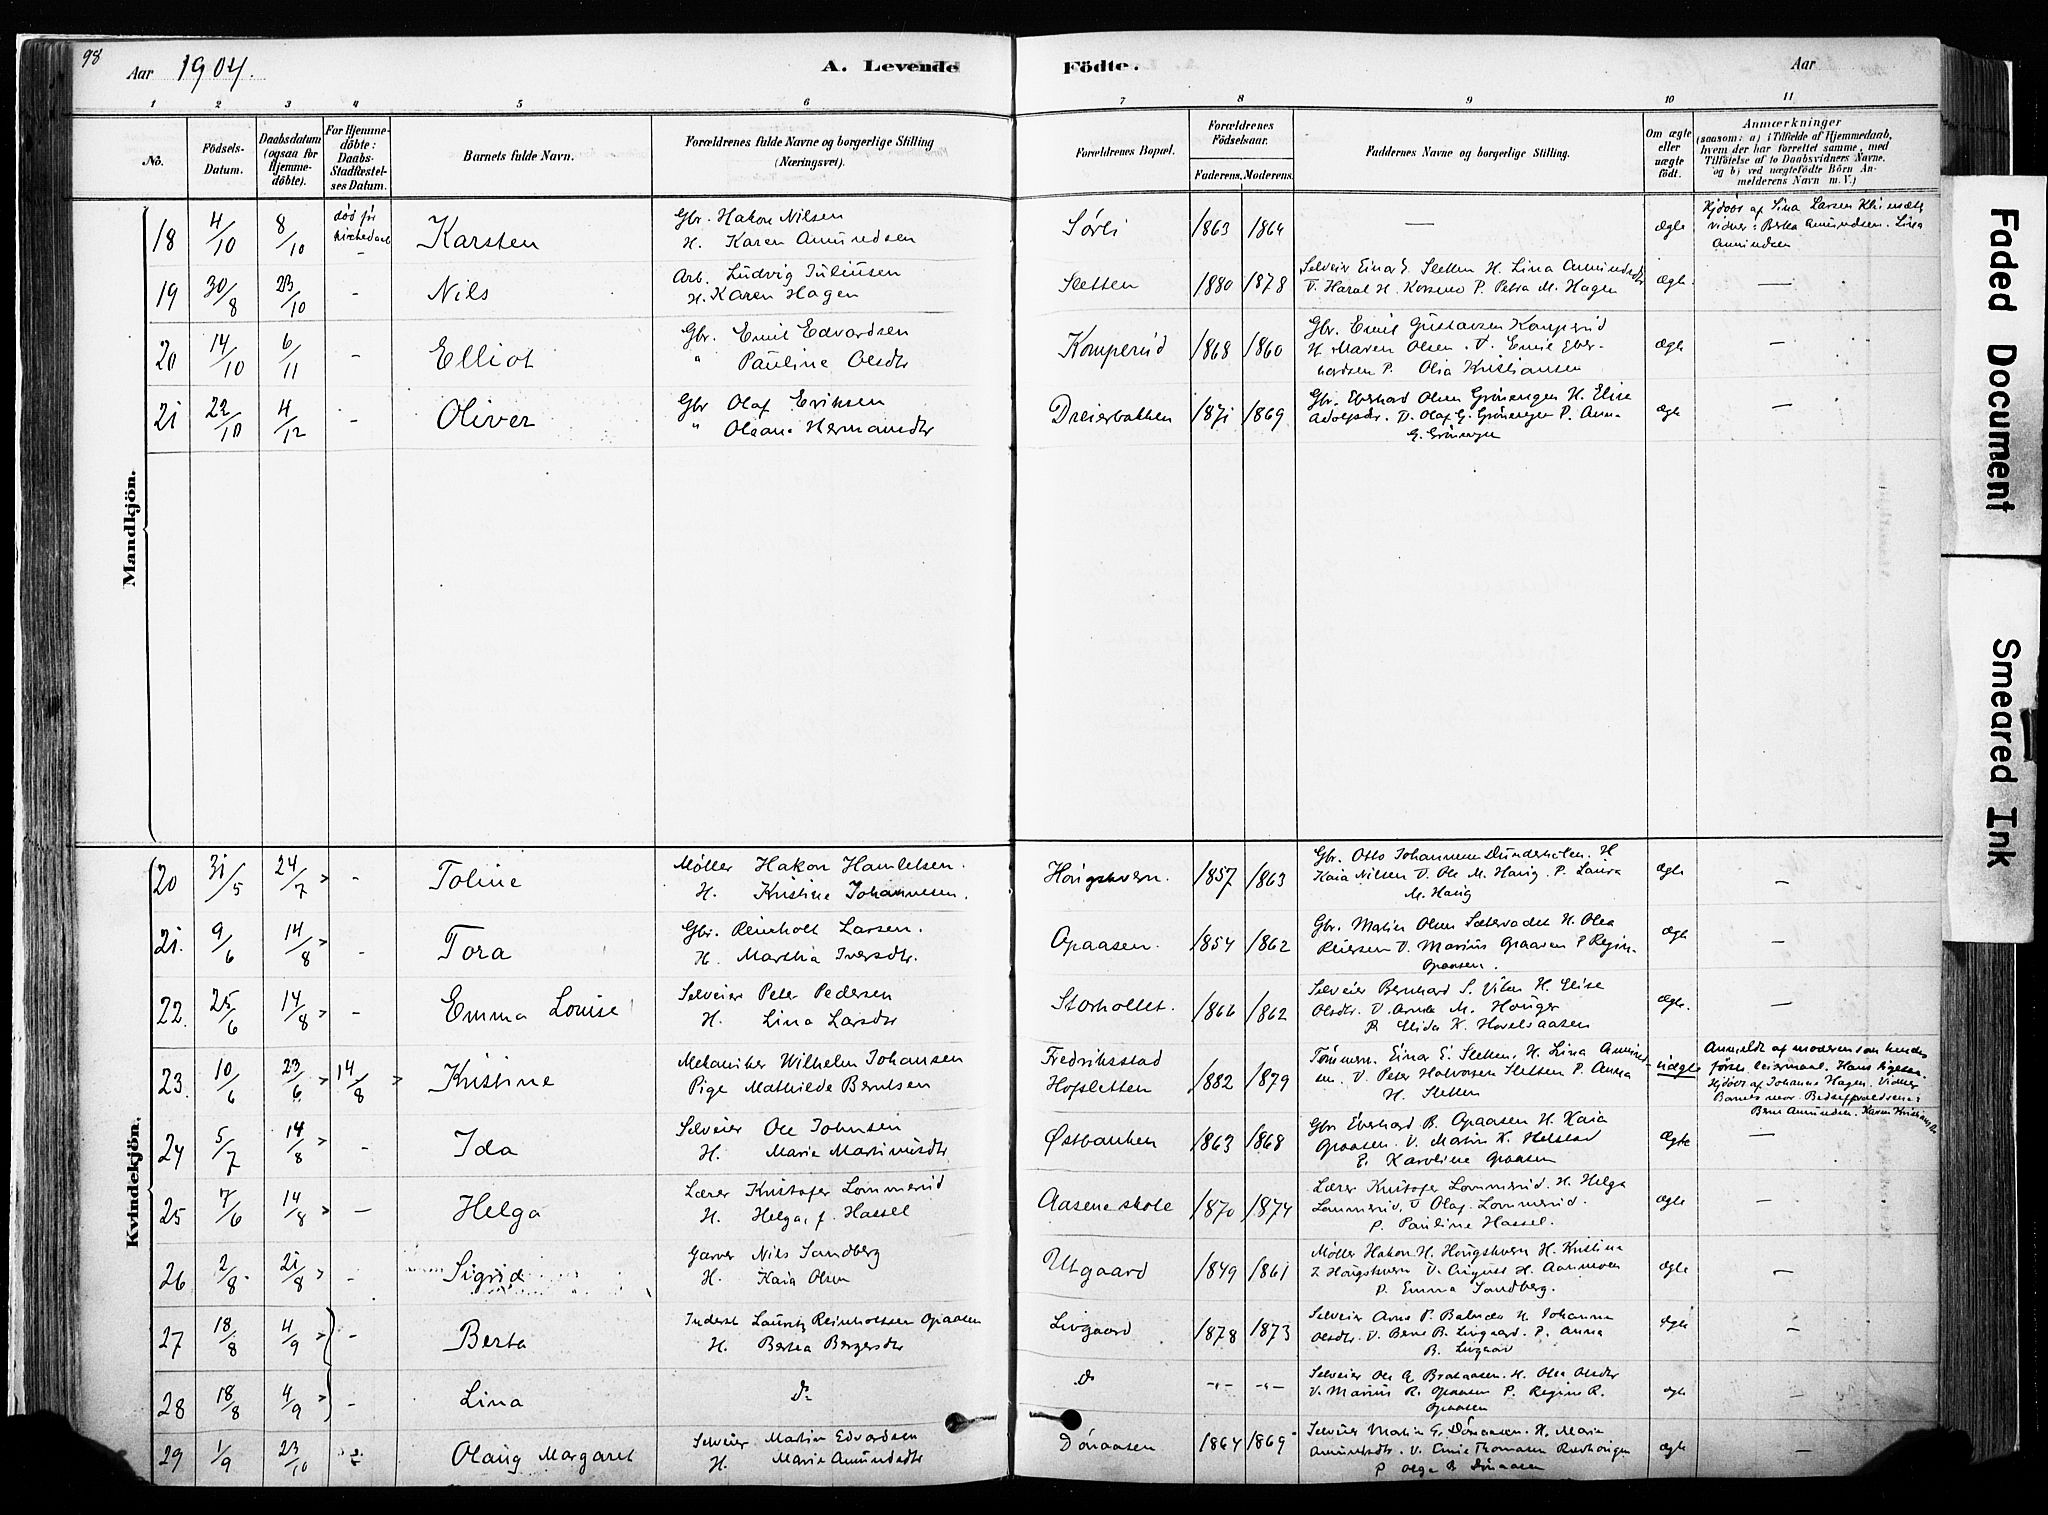 98
Aar 1904.
A. Levende Födte.
Aar
1 2 3 4 5 6 7 8 9 10 11
No.
Födsels-Datum.
Daabsdatum (ogsaa for Hjemme-döbte).
For Hjemme-döbte: Daabs-Stadfæstel-ses Datum.
Barnets fulde Navn.
Forældrenes fulde Navne og borgerlige Stilling (Næringsvei).
Forældrenes Bopæl.
Forældrenes Födselsaar.
Faderens. Moderens.
Faddernes Navne og borgerlige Stilling.
Om ægte eller uægte födt.
Anmærkninger
(saasom: a) i Tilfælde af Hjemmedaab, hvem der har forrettet samme, med Tilföielse af to Daabsvidners Navne, og b) ved uægtefödte Börn An-melderens Navn m. V.)
Mandkjön.
18 4/10 8/10 död för Karsten Gbr. Hakon Nilsen
H. Karen Amundsen Sørli 1863 1864 — ægte Hjdöbt af Lina Larsen
vidner: Berta Amundsen. Lina
Amundsen
19 30/8 23/10 - Nils Arb. Ludvig Juliusen
H. Karen Hagen Sletten 1880 1878 Selveier Einar E. Sletten H. Lina Amundsdtr
V. Haral H. Korsmo P. Petra M. Hagen ægte —
20 14/10 6/11 - Elliot Gbr. Emil Edvardsen
" Pauline Olsdtr Komperud 1868 1860 Gbr. Emil Gustavsen Komperud
H. Maren Olsen. V. Emil Gber-
hardsen P. Olia Kristiansen ægte —
21 22/10 4/12 - Oliver Gbr Olaf Eriksen
" Oleane Hermansdtr Dreierbakken 1871 1869 Gbr. Eberhard Olsen Gröningen H. Elise
Adolfsdr. V. Olaf G. Gröningen P. Anna
G. Gröningen ægte —
Kvindekjön.
20 31/5 24/7 - Toline Möller Hakon Hamletsen.
H. Kristine Johannesen. Höugskvern. 1857 1863 Gbr. Otto Johannesen Dunderholen. H
Kaia Nilsen V. Ole M. Haug. P. Laura
M. Haug ægte —
21. 9/6 14/8 - Tora Gbr. Reinholt Larsen.
H. Marthia Iversdtr. Opaasen. 1854 1862 Gbr. Matin Olsen Sætervadet H. Olea
Reiersen V. Marius Opaasen P Regine
Opaasen. ægte —
22. 25/6 14/8 - Emma Louise Selveier Peter Pedersen
H. Lina Larsdtr Storholtet. 1866 1862 Selveier Bernhard S. Viken H. Elise
Olsdtr. V. Arnt M. Houger
P. Elida K. Hovelsaasen ægte. —
23. 10/6 23/6 14/8 Kristine Mekaniker Wilhelm Johansen
Pige Mathilde Berntsen Fredriksstad
Hofsletten 1882 1879 Tömmerm. Einar E. Sletten. H. Lina Amund-
sen. V. Peter Halvorsen Sletten P. Anna
H. Sletten uægte Anmeldt af moderen som hendes
første leiermaal.
Hjdöbt af Johanne Hagen. Vidner
Barnets mor
Bernt Amundsen. Karen
24 5/7 14/8 - Ida Selveier Ole Johnsen
H. Marie Martinusdtr Østbanken 1863 1868 Gbr Eberhard B. Opaasen H. Kaia
Opaasen. V. Martin K. Helstad
P. Karoline Opaasen ægte —
25 7/6 14/8 — Helga Lærer Kristofer Lommerud
H. Helga, f. Hassel Aasene skole 1870 1874 Lærer Kristofer Lommerud. H. Helga
Lommerud. V Olaf Lommerud.
P. Pauline Hassel. ægte —
26 2/8 21/8 - Sigrid Garver Nils Sandberg
H. Kaia Olsen Utgaard 1849 1861 Möller Hakon H. Höugskvern H. Kristina
J. Höugskvern V. August H. Aanmoen
P. Emma Sandberg. ægte —
27 18/8 4/9 - Berta Inderst Lauritz Reinholtsen Opaasen
H. Bertea Bergersdtr Livgaard 1878 1873 Selveier Arne P. H. Johanna
Olsdtr. V. Bernt B. Livgaard. P. Anna
B. Livgaard ægte —
28 18/8 4/9 - Lina do do -"- -"- Selveier Ole Braaaasen. H. Olea Olsdtr
V. Marius R. Opaasen P. Regine R.
Opaasen ægte —
29 1/9 23/10 Olaug Margaret Selveier Martin Edvardsen
H. Marie Amundsdtr Dönaasen 1864 1869 Selveier Martin E. Dönaasen. H. Marie
Amundsdtr. V. Thomasen
P Olga B Dönaasen ægte —
Faded Document
Smeared Ink